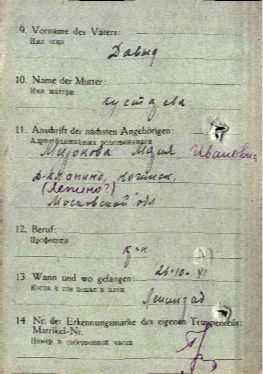 9. Vorname des Vaters:
Имя отца
Давыд
10. Name der Mutter:
Имя матери
Густаева
11. Anschrift der nächsten Angehörigen:
Миронова Мария Ивановна
д-Капино, Ногинск,
(Лепино?)
Московской обл
12. Beruf:
Профессия
13 Wann und wo gefangen: 26-10-41
Когда и где попал в плен
Ленинград
14 Nr. der Erkennungsmarke des eigenen Truppenteils:
Matrikel-Nr.
Номер в собственной части